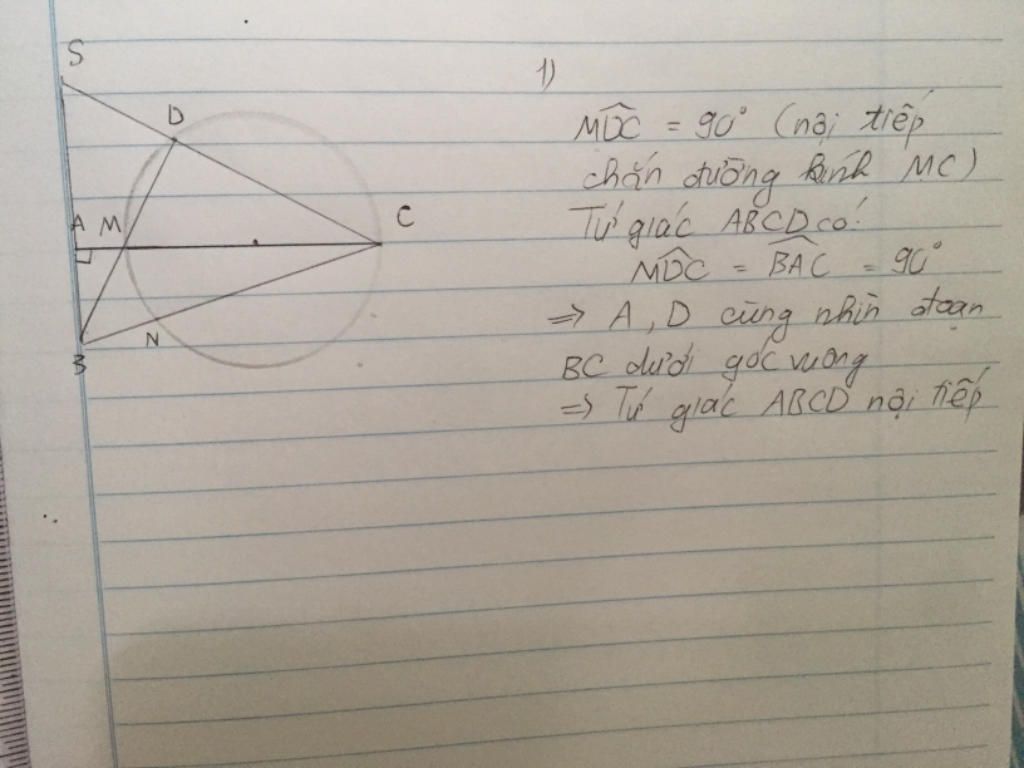 S
D
A M
C
N
B
1)
MDC = 90° (nội tiếp
chắn đường kính MC)
Tứ giác ABCD có:
MDC = BAC = 90°
=> A, D cùng nhìn đoạn
BC dưới góc vuông
=> Tứ giác ABCD nội tiếp